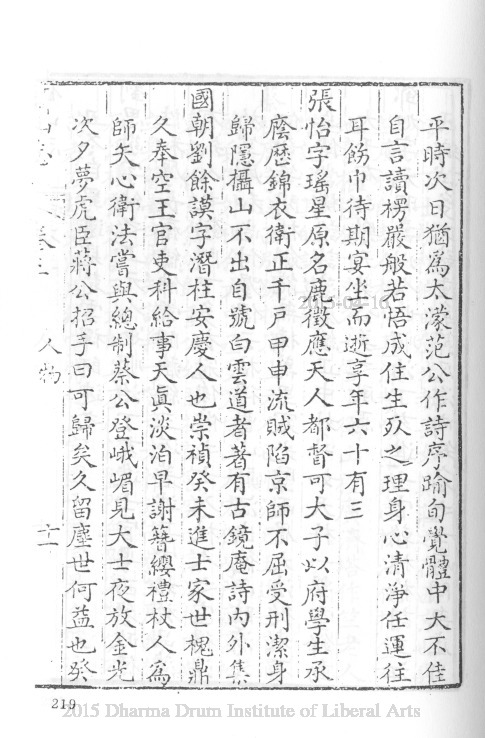 平時次日猶為太濛范公作詩序踰旬覺體中大不佳
自言讀楞嚴般若悟成住生死之理身心清淨任運往
耳飭巾待期宴坐而逝享年六十有三
張怡字瑤星原名鹿徵應天人都督可大子以府學生承
廕歷錦衣衛正千戶甲申流賊陷京師不屈受刑潔身
歸隱攝山不出自號白雲道者著有古鏡庵詩內外集
國朝劉餘謨字潛柱安慶人也崇禎癸未進士家世槐鼎
久奉空王官吏科給事天真淡泊早謝簪纓禮杖人為
師矢心衛法嘗與總制蔡公登峨嵋見大士夜放金光
次夕夢虎臣蔣公招手曰可歸矣久留塵世何益也癸
卷三 人物 十一
219
2015-04-16
2015 Dharma Drum Institute of Liberal Arts